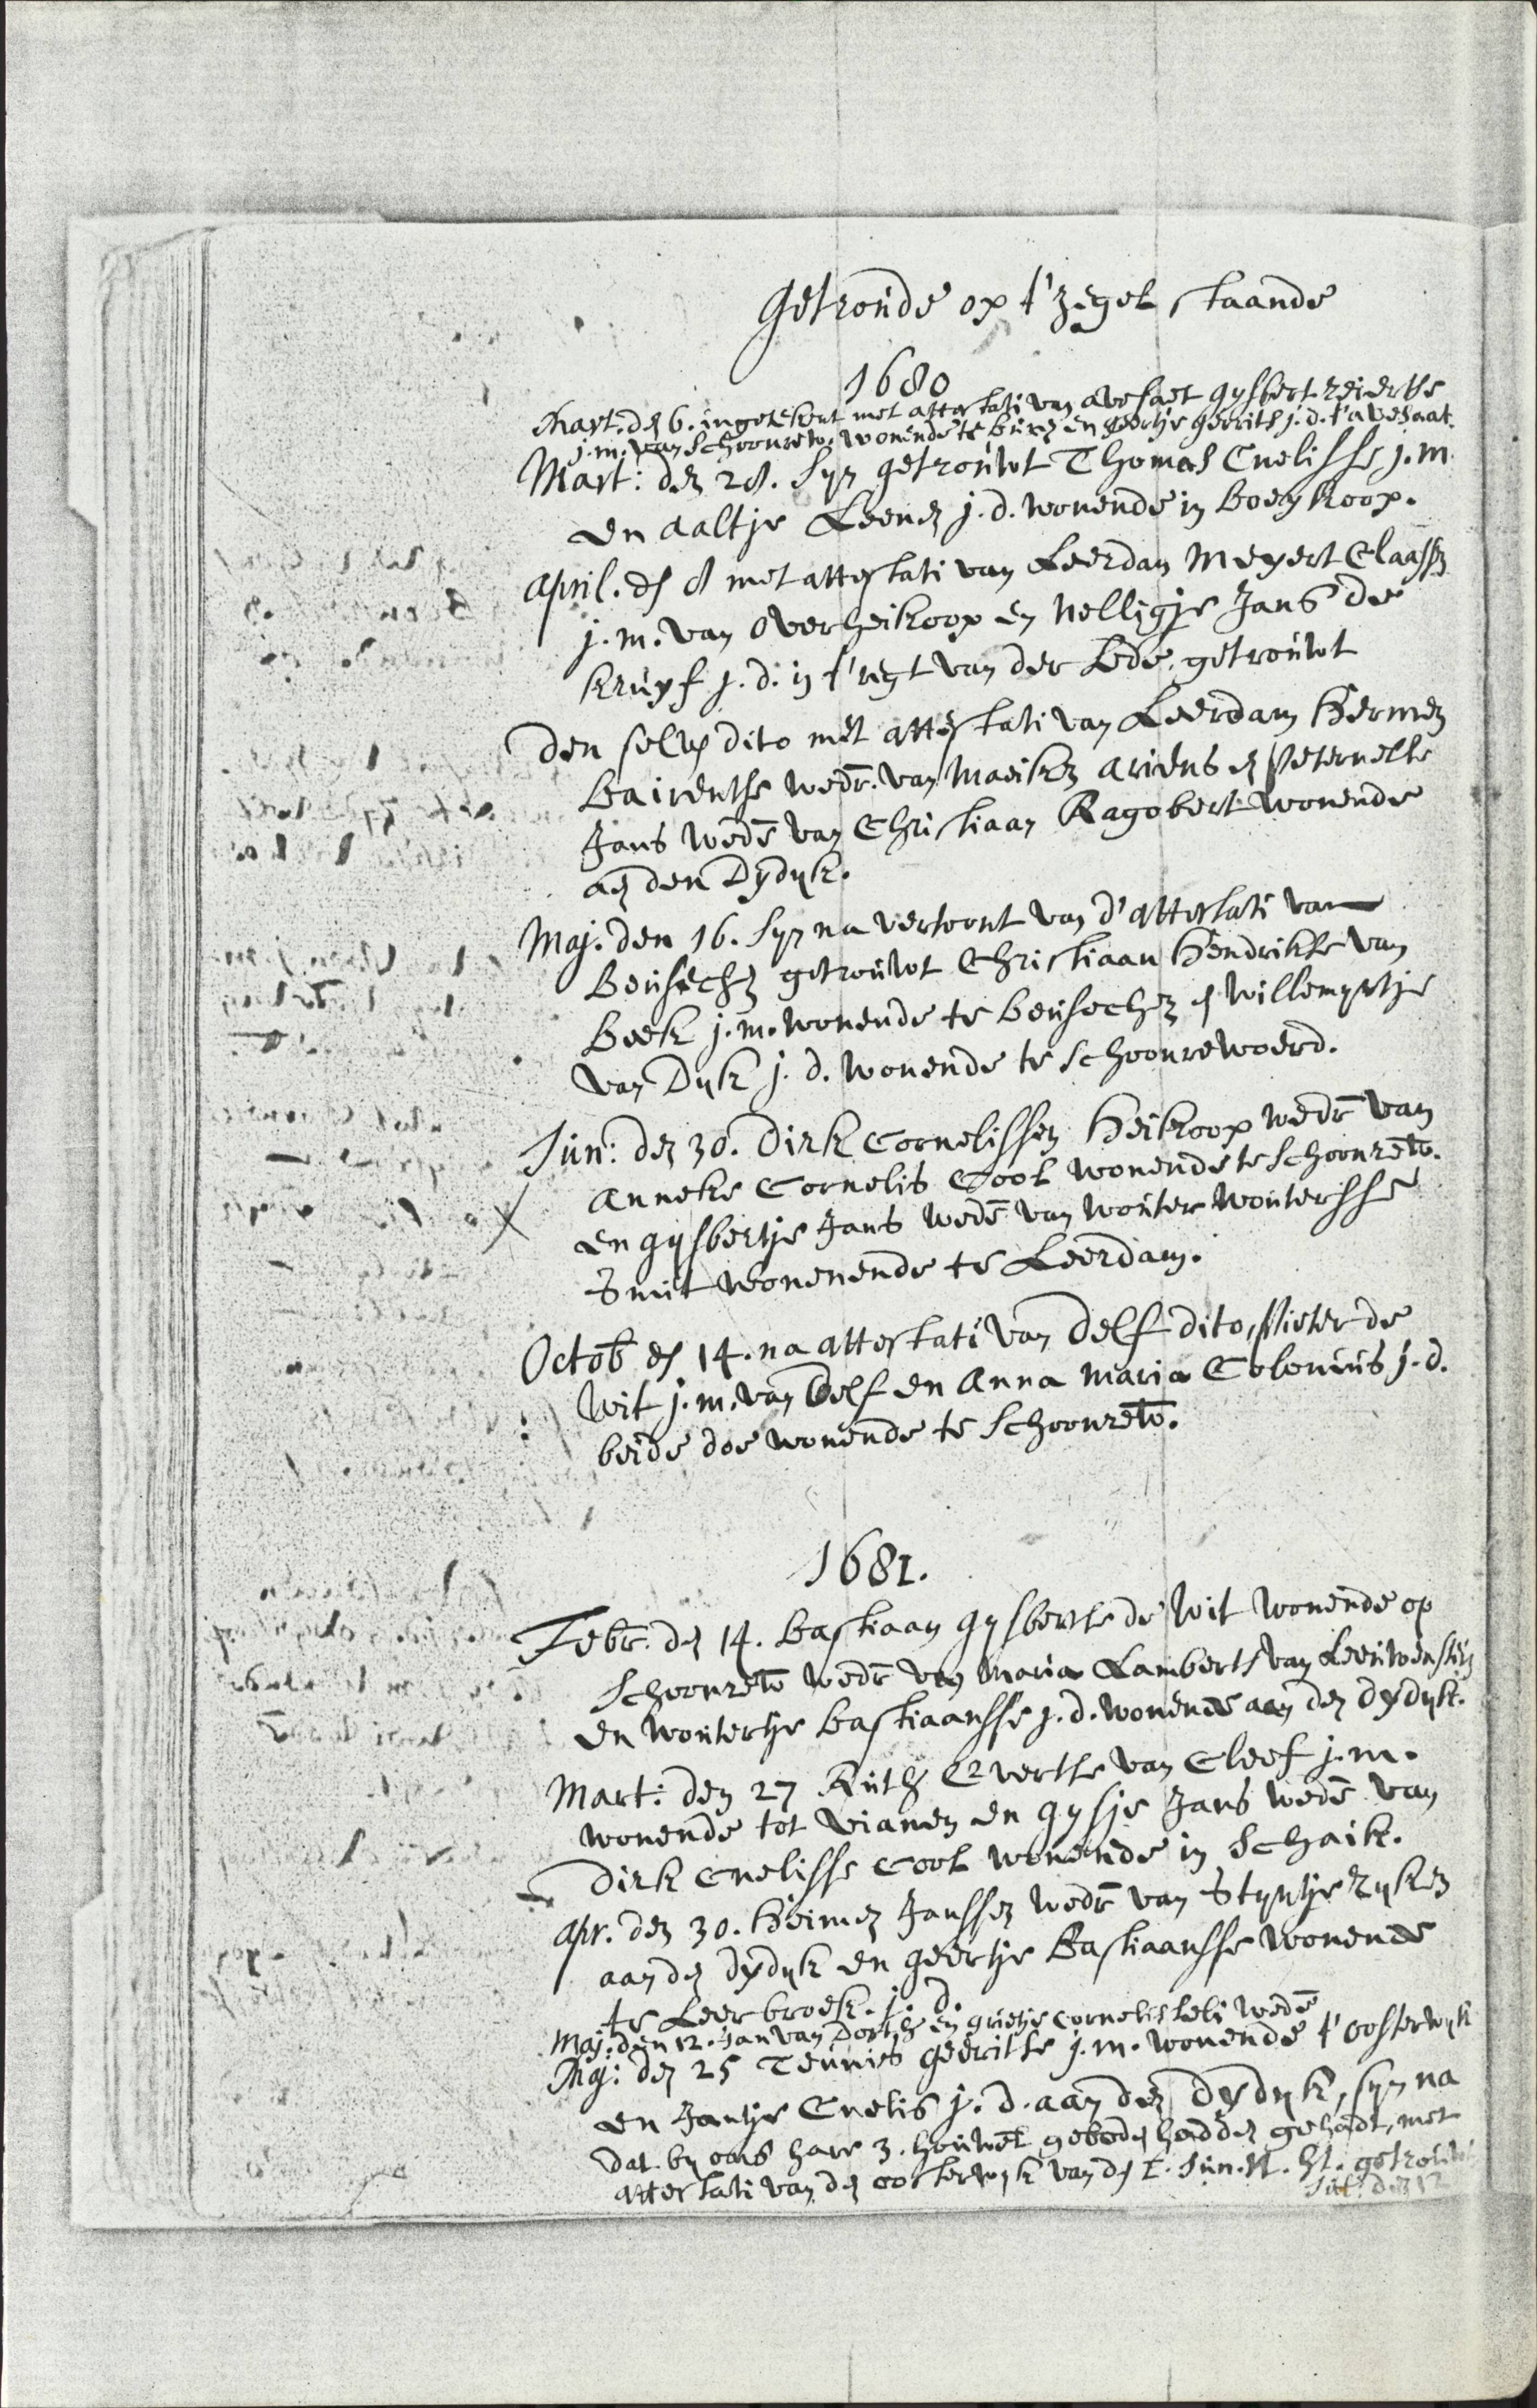 Getroude op t'zegel staande
1680
Mart: den 6. ingetekent met attestati van Avesaet Gysbert Reierse
j.m. van Schoonrew. wonende te Buren en Geertje Gerrits j.d. t'Avesaat.
Mart: den 28. syn getrouwt Thomas Cnelisse j.m.
en Aaltje Leenen j.d. wonende in Boeykoop.
April. den 8 met attestati van Leerdam Meyert Claassen
j.m. van Overheikoop en Nelligje Jans de
Kruyf j.d. in t'regt van der Lede, getrouwt
Den selven dito met attestati van Leerdam Hermen
Bairentse wedr. van Maeiken Ariens en Peternelle
Jans wede van Christiaan Ragobert wonende
aen den Dydyk.
Maj. den 16. syn na vertoont van d'attestati van
Beusechem getrouwt Christiaan Hendrikse van
Beek j.m. wonende te Beusechem en Willempertje
van Dyk j.d. wonende te Schoonrewoerd.
Jun: den 30. Dirk Cornelissen Heikoop wedr van
Anneke Cornelis Cool wonende te Schoonrew.
en Gysbertje Jans wede van Wouter Woutersse
Smit wonenende te Leerdam.
Octob den 14. na attestati van Delf dito, Pieter de
Wit j.m. van Delf en Anna Maria Colonius j.d.
beide doe wonende te Schoonrew.
1681.
Febr. den 14. Bastiaan Gysbertse de Wit wonende op
Schoonrew wedr van Maria Lamberts van Leeuwenstein
en Woutertje Bastiaansse j.d. wonende aan den dydyk.
Mart: den 27 Ruth Evertse van Cleef j.m.
wonende tot Vianen en Gysje Jans wede van
Dirk Cnelisse Cool wonende in Schaik.
Apr. den 30. Heimen Janssen wedr van Styntje Ryken
aan den dydyk en Geertje Bastiaansse wonende
te Leerbroek. j. d.
Maj: den 12. Jan van Dort en Grietje Cornelis wede
Maj: den 25 Teunis Geeritse j.m. wonende t'Oosterwyk
en Jantje Cnelis j.d. aan den dydyk, syn na
dat by ons hare 3. houwel. geboden hadden gehadt, met
attestati van den Oosterwyk van den 1. Jun. N. St. getrouwt
Jul: den 12